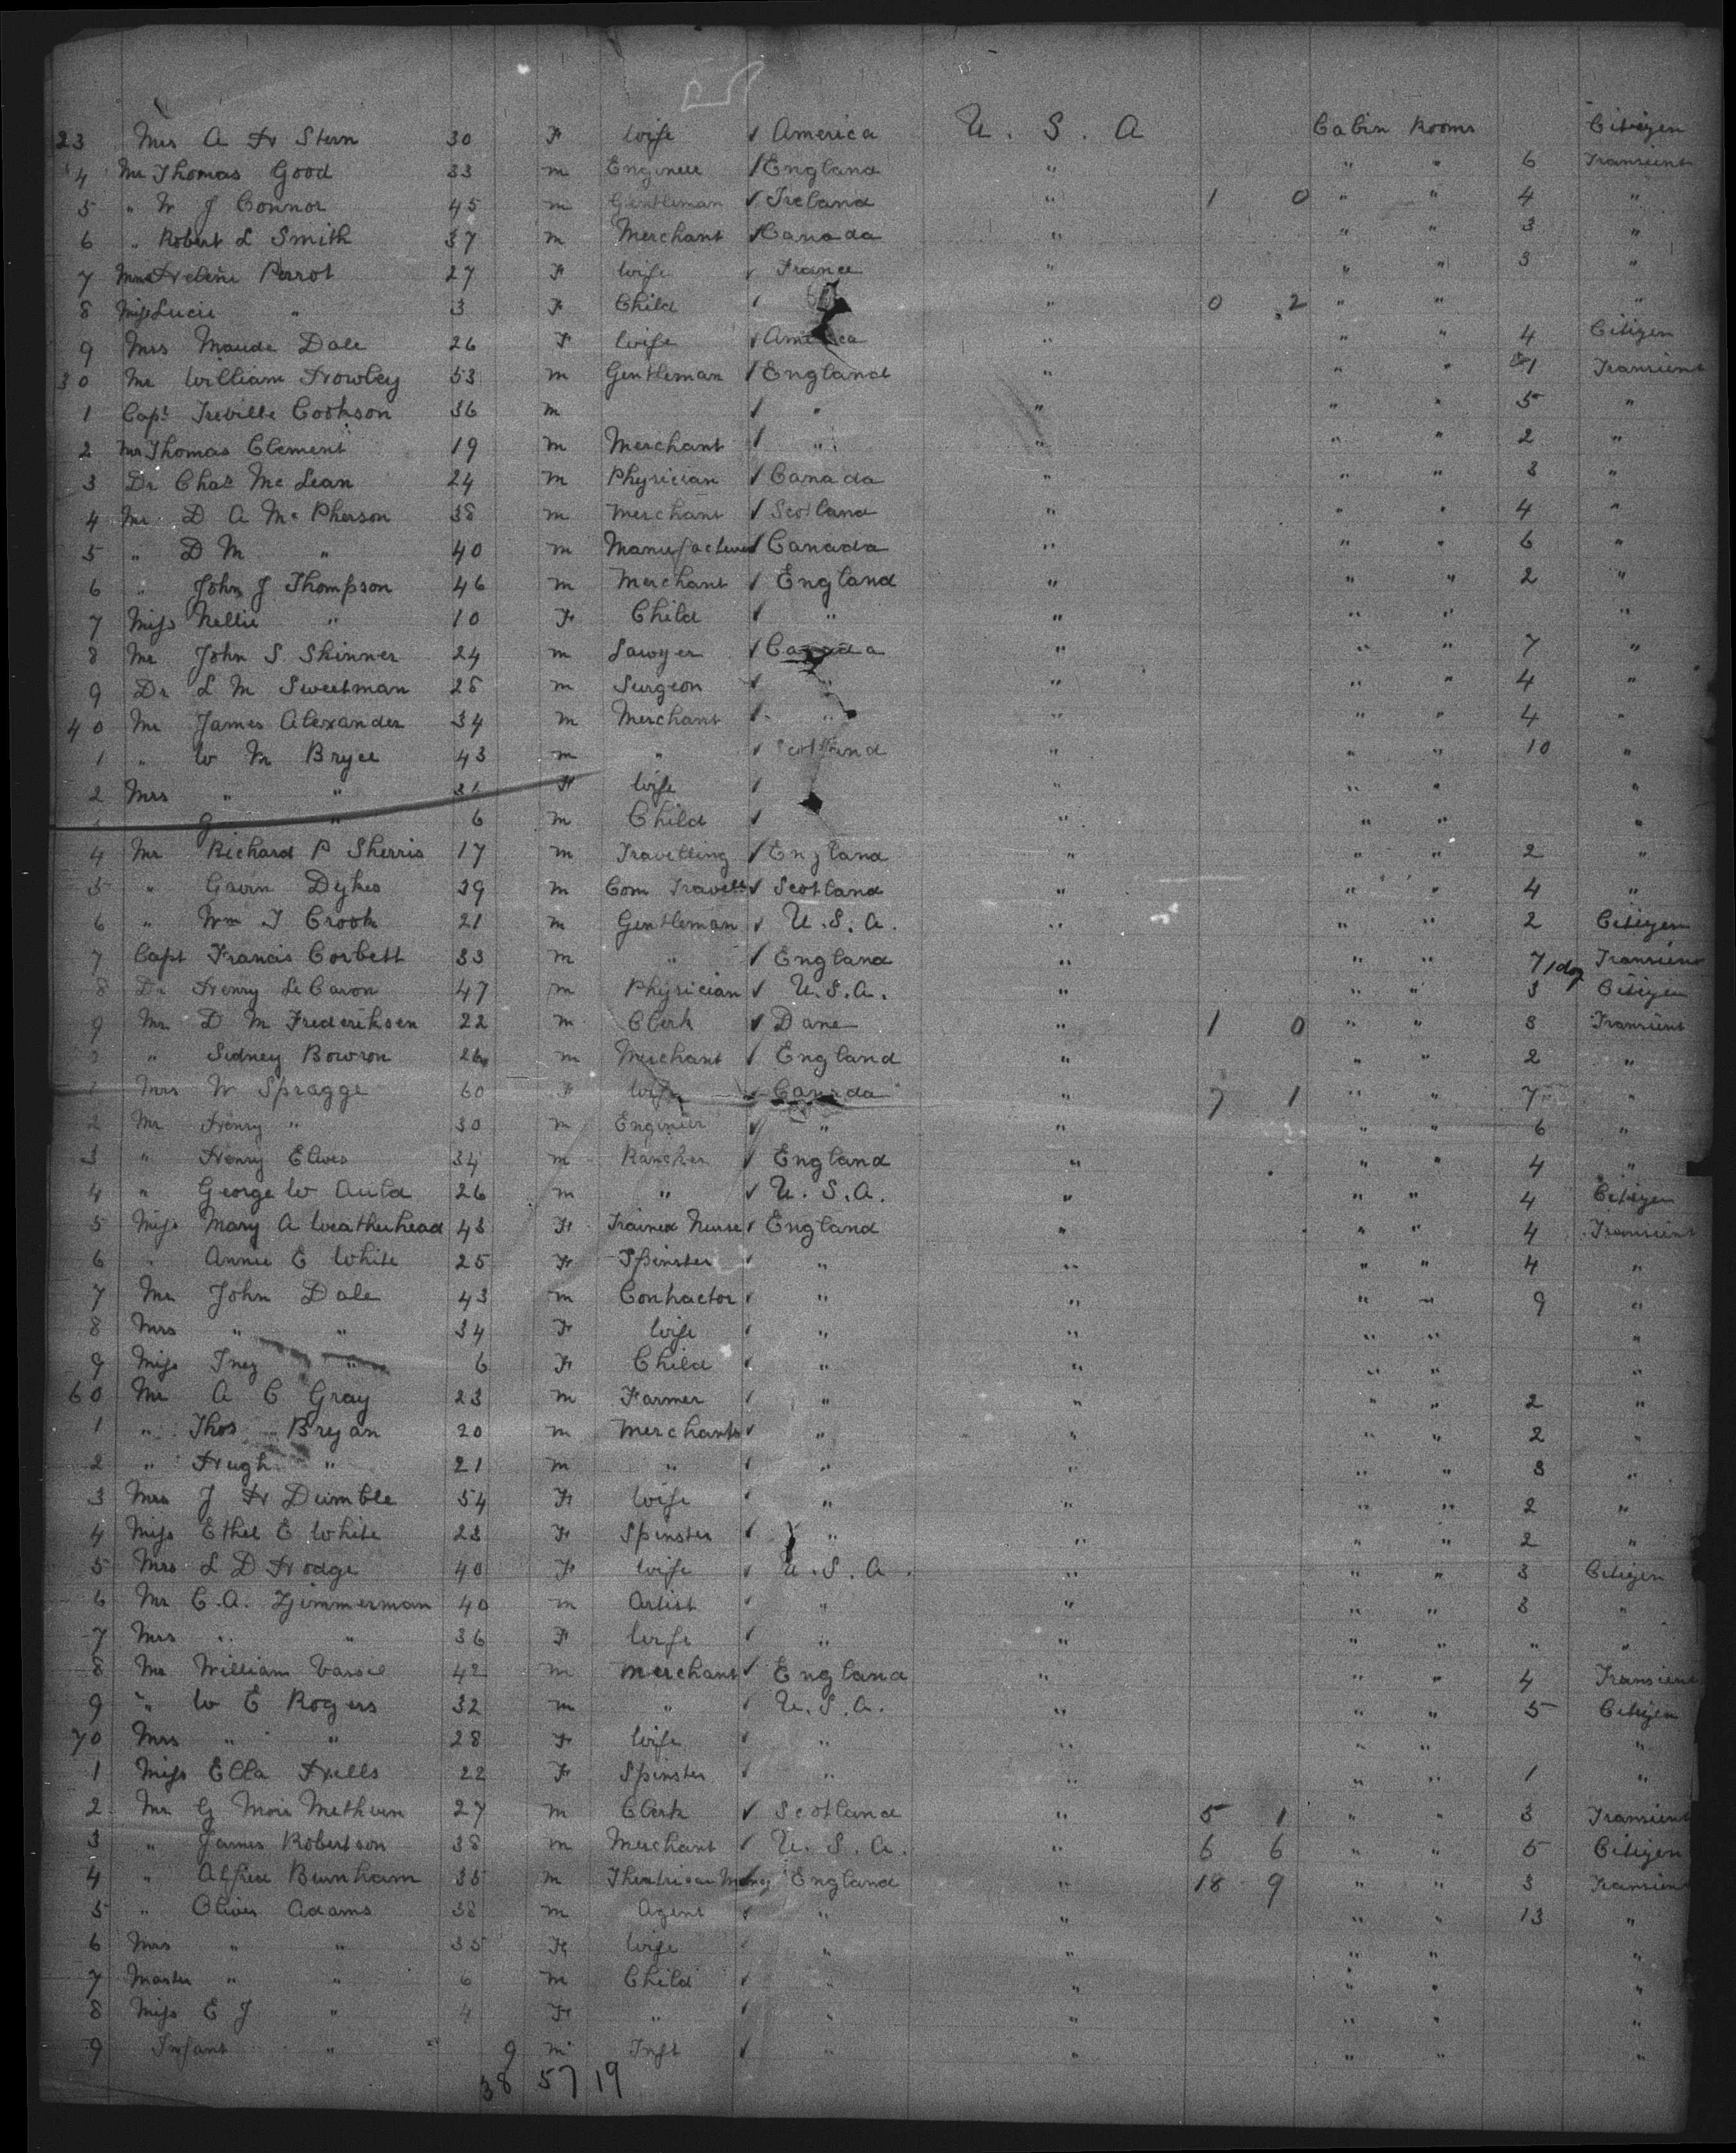 23 Mrs A H Stern 30 F Wife ✓ America U. S. A Cabin Rooms Citizen
4 Mr Thomas Good 33 m Engineer ✓ England " " " 6 Transient
5 " W J Connor 45 m Gentleman ✓ Ireland " 1 0 " " 4 "
6 " Robert L Smith 37 m Merchant ✓ Canada " " " 3 "
7 Helene Perrot 27 F Wife ✓ France " " " 3 "
8 Miss Lucie " 3 F Child ✓ " 0 2 " " "
9 Mrs Maude Dale 26 F Wife ✓ America " " " 4 Citizen
30 Mr William Howley 53 m Gentleman ✓ England " " " 1 Transient
1 Capt Treville Cookson 36 m ✓ " " " " 5 "
2 Mr Thomas Clement 19 m Merchant ✓ " " " " 2 "
3 Dr Chas Mc Lean 24 m Physician ✓ Canada " " " 3 "
4 Mr D A Mc Pherson 38 m Merchant ✓ Scotland " " " 4 "
5 " D M " 40 m Manufacturer ✓ Canada " " " 6 "
6 " John J Thompson 46 m Merchant ✓ England " " " 2 "
7 Miss Nellie " 10 F Child ✓ " " " " "
8 Mr John S Skinner 24 m Lawyer ✓ Canada " " " 7 "
9 Dr L M Sweetman 28 m Surgeon ✓ " " " " 4 "
40 Mr James Alexander 34 m Merchant ✓ " " " " 4 "
1 " W M Bryce 43 m " ✓ Scotland " " " 10 "
2 Mrs " " 31 F Wife ✓ " " " "
G " 6 m Child ✓ " " " "
4 Mr Richard P Sherris 17 m Travelling ✓ England " " " 2 "
5 " Gavin Dykes 39 m Com Traveller ✓ Scotland " " " 4 "
6 " Wm T Crook 21 m Gentleman ✓ U.S.A. " " " 2 Citizen
7 Capt Francis Corbett 33 m " ✓ England " " " 7 1 dog Transient
8 Dr Henry Le Caron 47 m Physician ✓ U.S.A. " " " 3 Citizen
9 Mr D M Frederiksen 22 m Clerk ✓ Dane " 1 0 " " 3 Transient
" Sidney Bowron 26 m Merchant ✓ England " " " 2 "
1 Mrs W Spragge 60 F Wife ✓ Canada " 7 1 " " 7 "
2 Mr Henry " 30 m Engineer ✓ " " " " 6 "
3 " Henry Elwes 34 m Rancher ✓ England " " " 4 "
4 " George W Auld 26 m " ✓ U.S.A. " " " 4 Citizen
5 Miss Mary A Weatherhead 43 F Trained Nurse ✓ England " " " 4 Transient
6 " Annie E White 25 F Spinster ✓ " " " " 4 "
7 Mr John Dale 43 m Contractor ✓ " " " " 9 "
8 Mrs " " 34 F Wife ✓ " " " " "
9 Miss Inez " 6 F Child ✓ " " " " "
60 Mr A C Gray 23 m Farmer ✓ " " " " 2 "
1 " Thos Bryan 20 m Merchants ✓ " " " " 2 "
2 " Hugh " 21 m " ✓ " " " " 3 "
3 Mrs J H Dumble 54 F Wife ✓ " " " " 2 "
4 Miss Ethel E White 23 F Spinster ✓ " " " " 2 "
5 Mrs L D Hodge 40 F Wife ✓ U.S.A. " " " 3 Citizen
6 Mr C.A. Zimmerman 40 m Artist ✓ " " " " 3 "
7 Mrs " " 36 F Wife ✓ " " " " " "
8 Mr William 42 m Merchant ✓ England " " " 4 Transient
9 " W E Rogers 32 m " ✓ U.S.A. " " " 5 Citizen
70 Mrs " " 28 F Wife ✓ " " " " "
1 Miss Ella Hills 22 F Spinster ✓ " " " " 1 "
2 Mr G Moir Methven 27 m Clerk ✓ Scotland " 5 1 " " 3 Transient
3 " James Robertson 38 m Merchant ✓ U.S.A. " 6 6 " " 5 Citizen
4 " Alfred Burnham 35 m Theatrical Mang ✓ England " 18 9 " " 3 Transient
5 " Oliver Adams 38 m Agent ✓ " " " " 13 "
6 Mrs " " 35 F Wife ✓ " " " " "
7 Master " " 6 m Child ✓ " " " " "
8 Miss E J " 4 F " ✓ " " " " "
9 Infant " 9 m Inft ✓ " " " " "
38 57 19